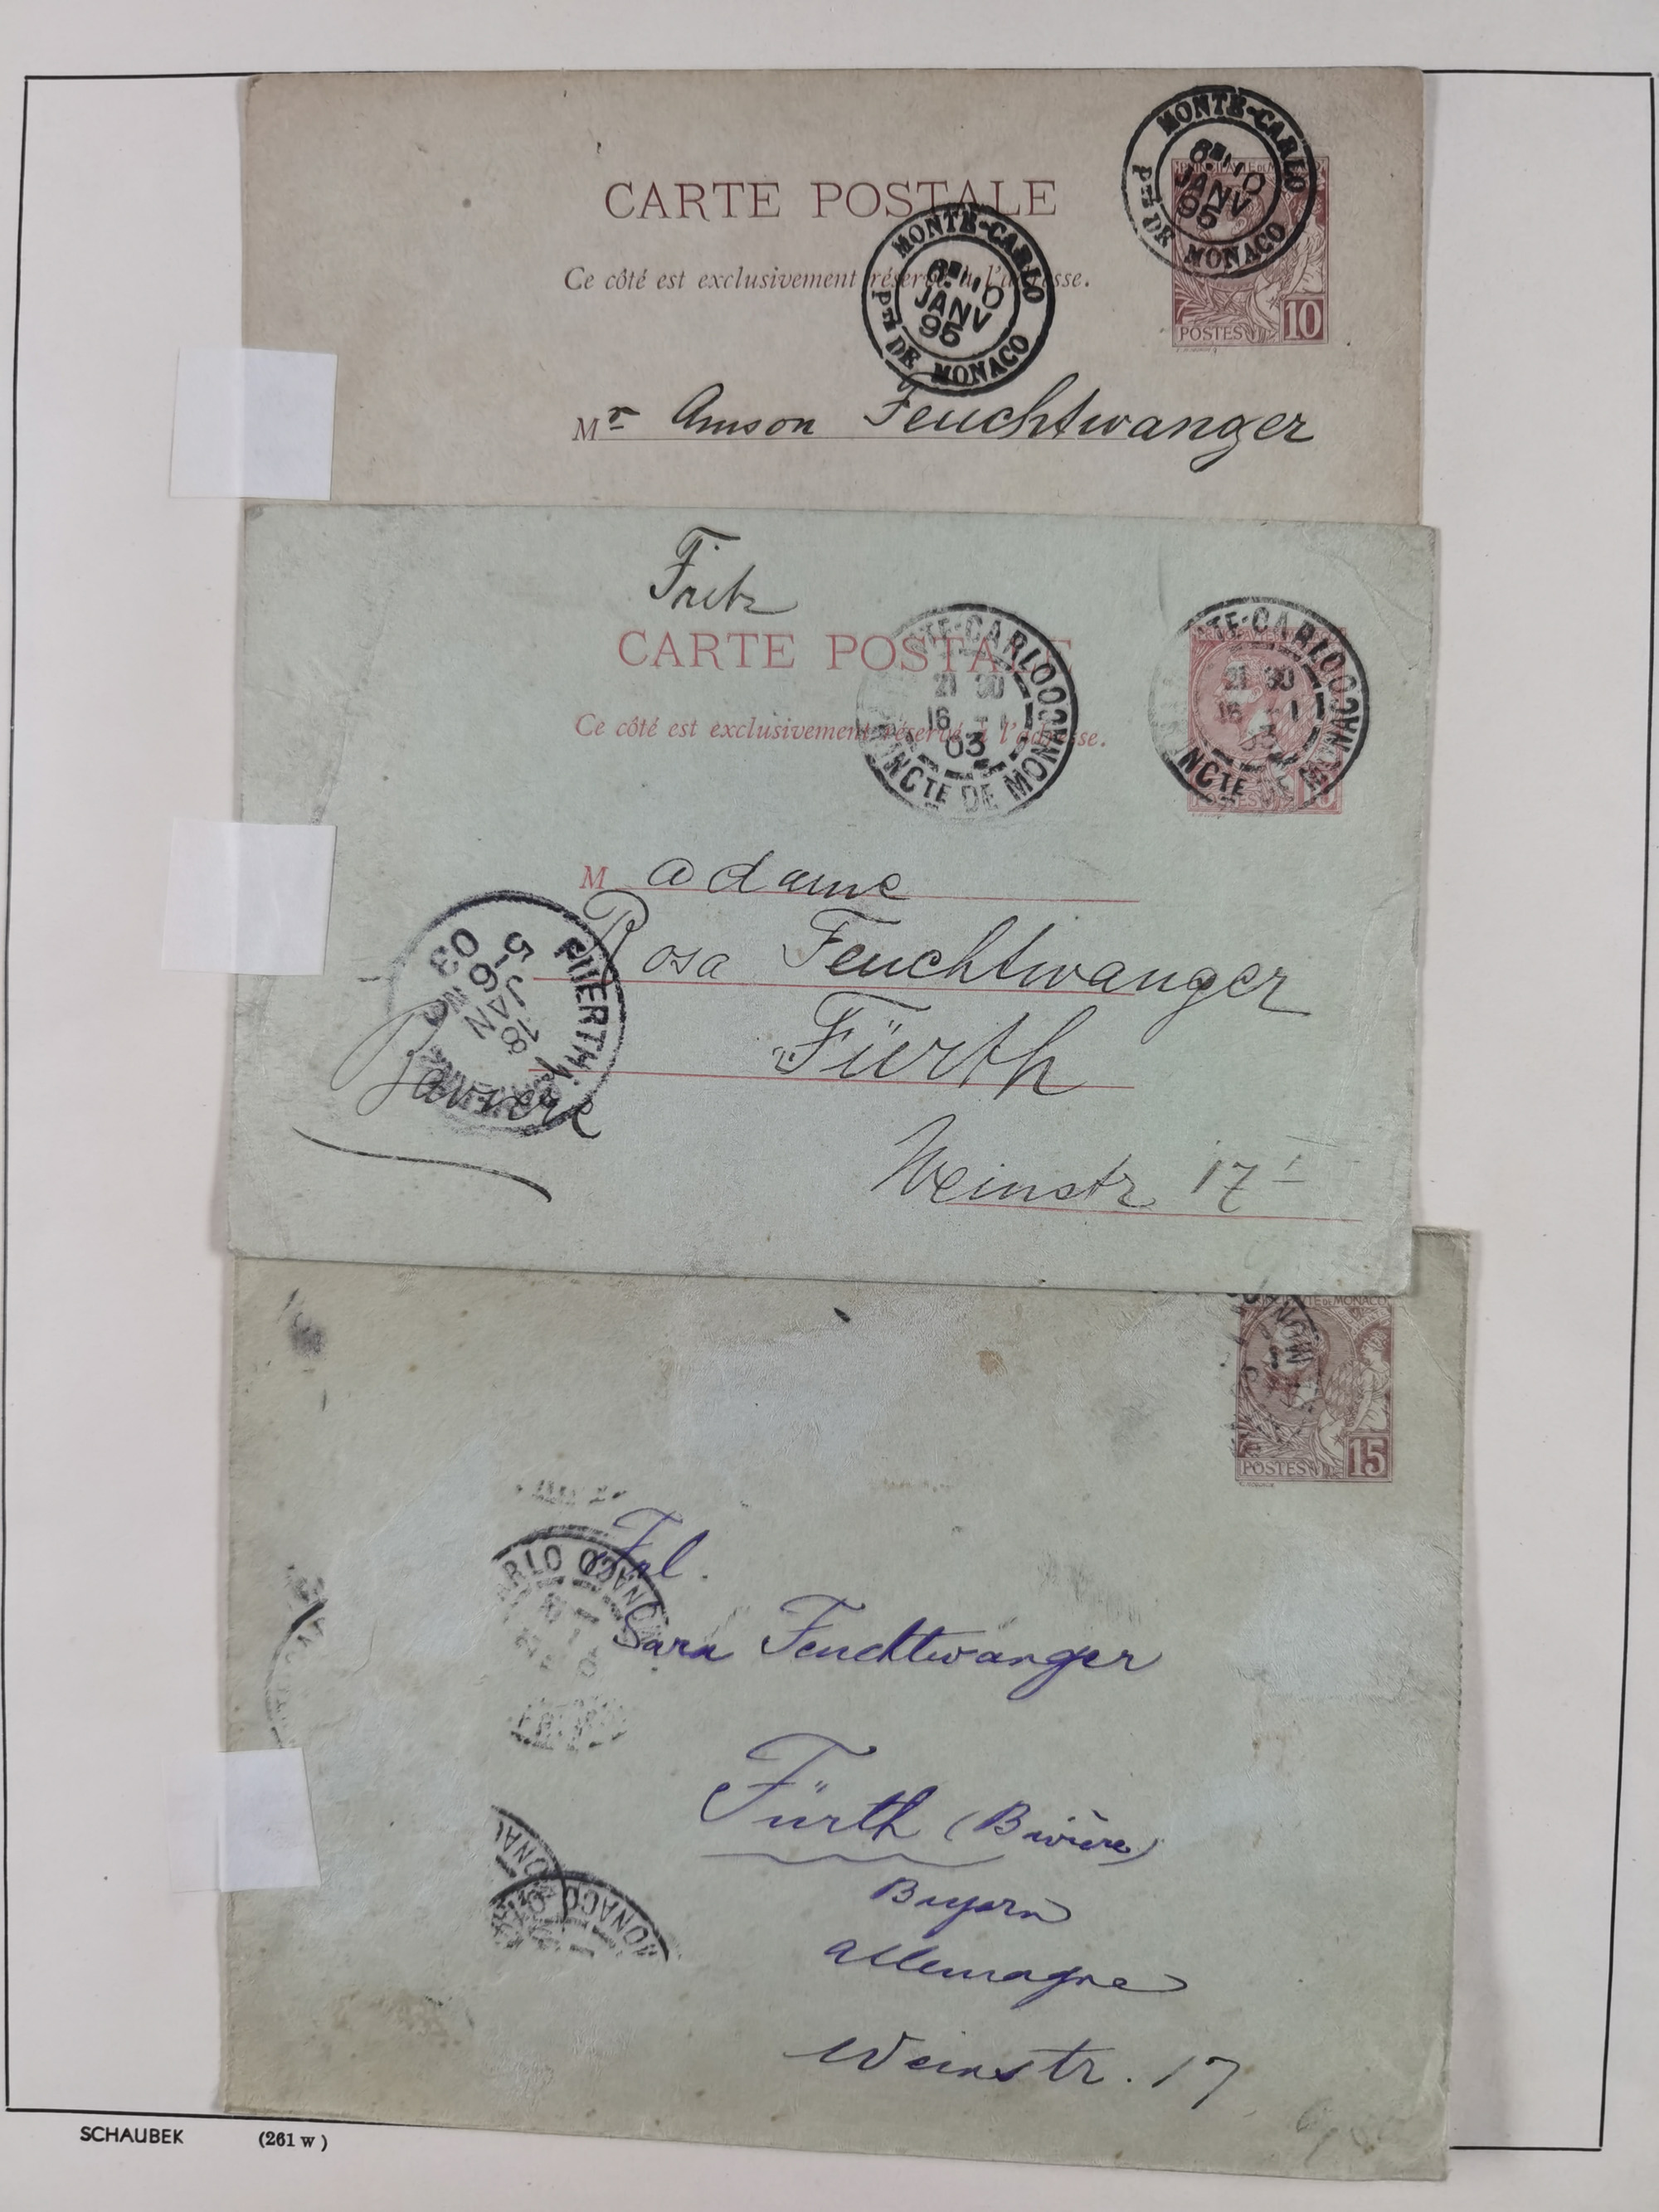 MONTE-CARLO
10
JANV
95
PTÉ DE MONACO
POSTES 10
CARTE POSTALE
MONTE-CARLO
10
JANV
95
PTÉ DE MONACO
Ce côté est exclusivement réservé à l'adresse.
Mr Amson Feuchtwanger
Fritz
CARTE POSTALE
NTE-CARLO
21 30
16 -1
03
NCTE DE MONACO
TE-CARLO
21 30
16 -1
03
NCTE DE MONACO
POSTES 10
Ce côté est exclusivement réservé à l'adresse.
Madame
Rosa Feuchtwanger
Fürth
Bavière
FUERTH
18
JAN
5-6N
03
Weinstr 17 I
TE DE MONACO
POSTES 15
Frl.
RLO
ONACO
Sara Feuchtwanger
Fürth (Bavière)
Bayern
Allemagne
Weinstr. 17
MONACO
SCHAUBEK (261 w)